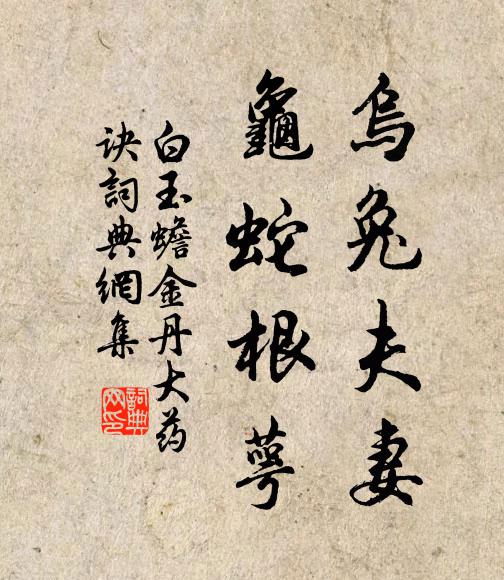 烏兔夫妻
龜蛇根萼
白玉蟾金丹大药
诀詞典網集
詞典网印